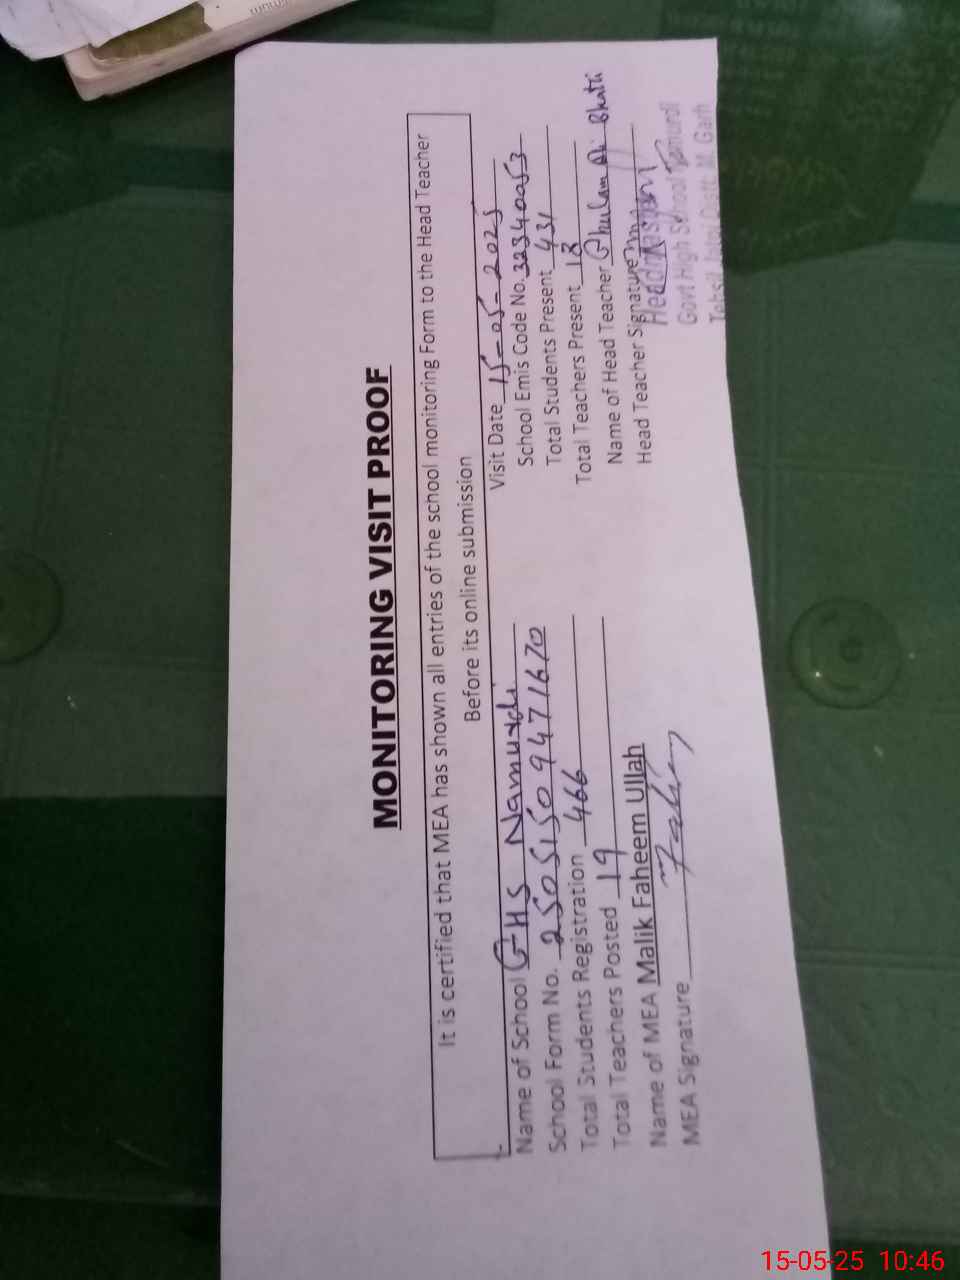 MONITORING VISIT PROOF
It is certified that MEA has shown all entries of the school monitoring Form to the Head Teacher
Before its online submission
Name of School GHS Namurdi
School Form No. 250515094716 70
Total Students Registration 466
Total Teachers Posted 19
Name of MEA Malik Faheem Ullah
MEA Signature Fahim
Visit Date 15-05-2025
School Emis Code No. 32340053
Total Students Present 431
Total Teachers Present 18
Name of Head Teacher Ghulam Ali Bhatti
Head Teacher Signature
Headmaster
Govt High School Namurdi
Tehsil Jatoi Distt: M. Garh
15-05-25 10:46